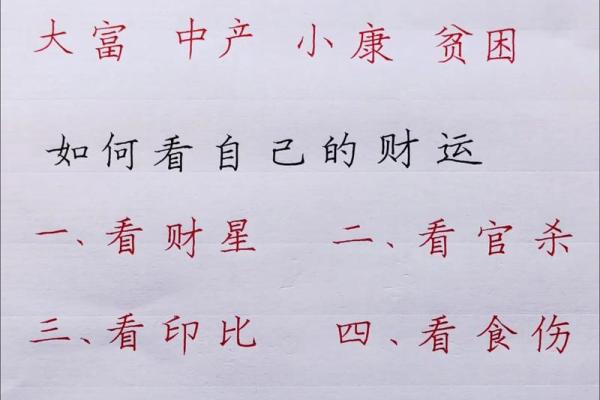 大富 中产 小康 贫困
如何看自己的财运
一、看财星 二、看官杀
三、看印比 四、看食伤